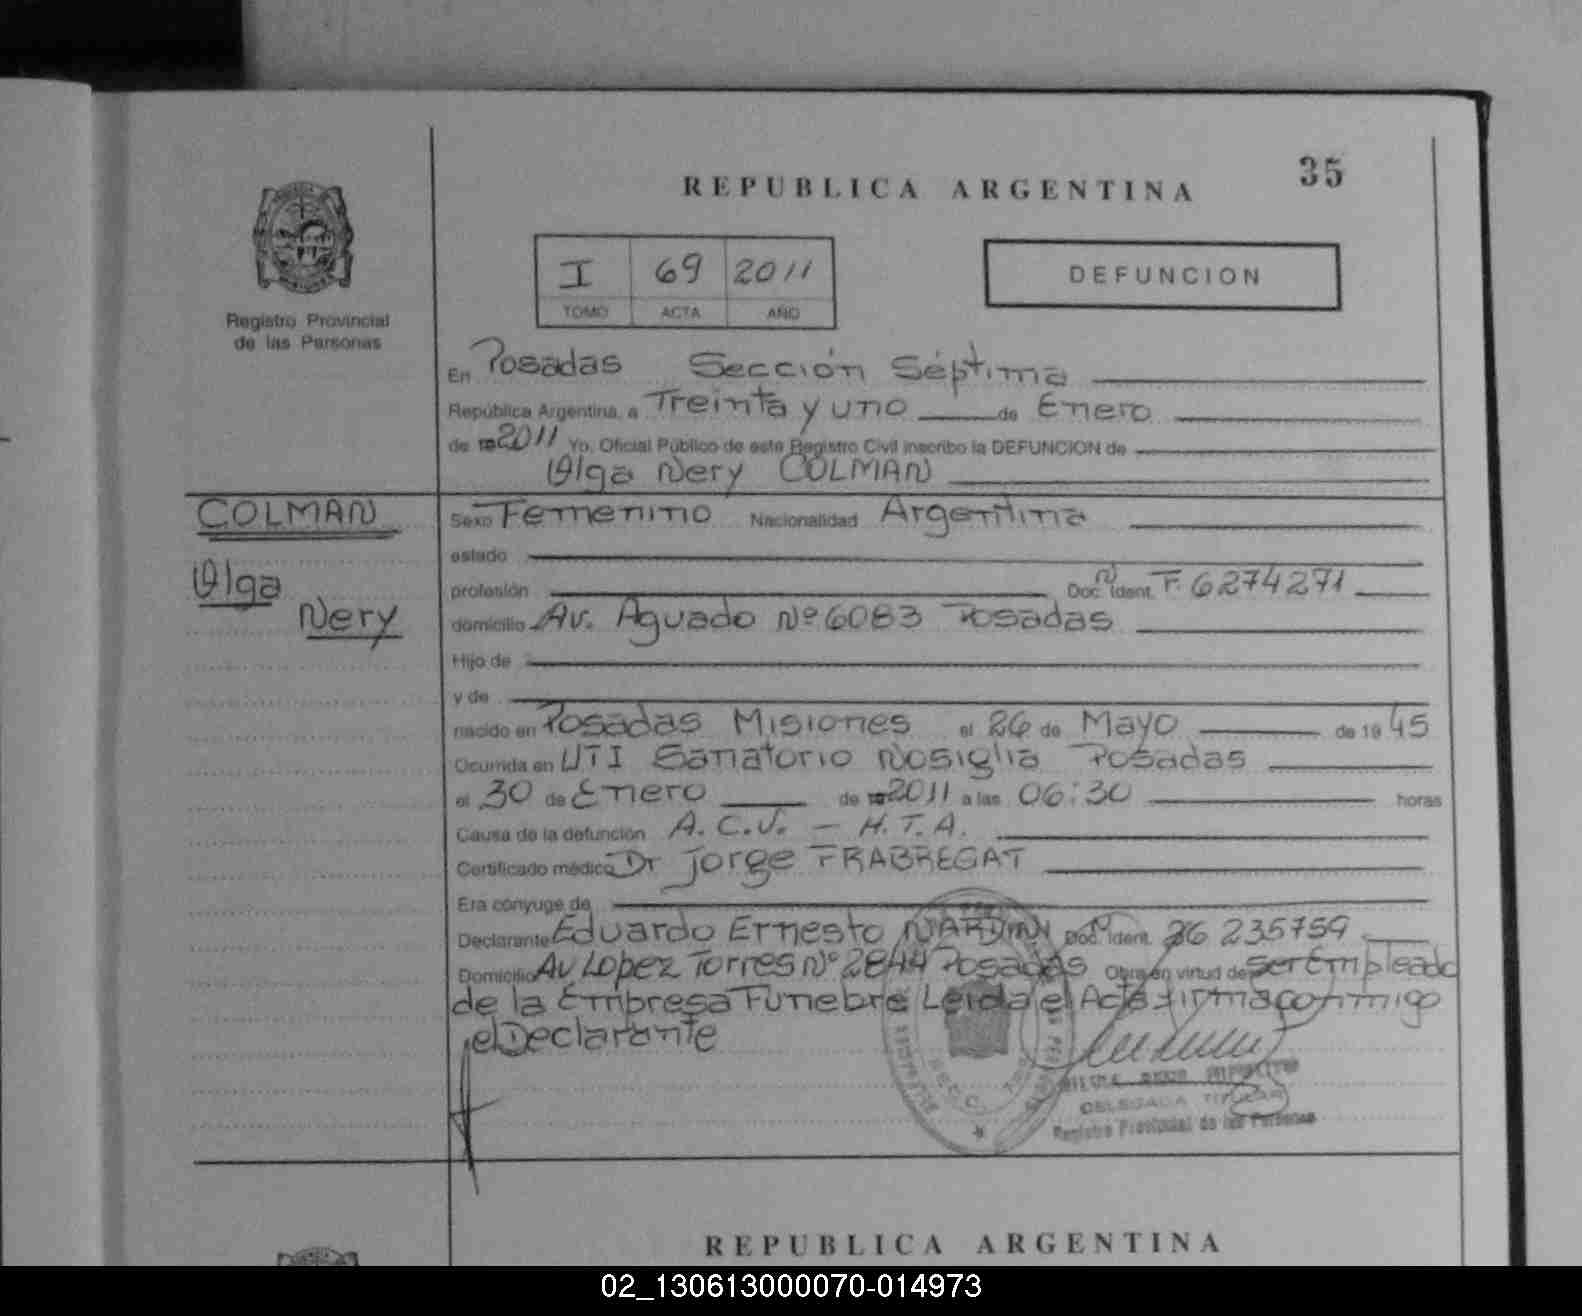 35
REPUBLICA ARGENTINA
I 69 2011
TOMO ACTA AÑO
DEFUNCION
Registro Provincial
de las Personas
En Posadas Sección Séptima
República Argentina, a Treinta y uno de Enero
de 2011 Yo, Oficial Público de este Registro Civil inscribo la DEFUNCION de
Olga Nery COLMAN
COLMAN
Olga
Nery
Sexo Femenino Nacionalidad Argentina
estado
profesión Doc. N Ident. F. 6274271
domicilio Av. Aguado Nº 6083 Posadas
Hijo de
y de
nacido en Posadas Misiones el 26 de Mayo de 19 45
Ocurrida en UTI Sanatorio Nosiglia Posadas
el 30 de Enero de 2011 a las 06:30 horas
Causa de la defunción A.C.V. - H.T.A.
Certificado médico Dr Jorge FRABREGAT
Era cónyuge de
Declarante Eduardo Ernesto Doc. N Ident. 26 235759
Domicilio Av Lopez Torres Nº 2844 Posadas Obra en virtud de ser Empleado
de la Empresa Funebre Leida el Acta firma conmigo
el Declarante
DELEGADA TITULAR
Registro Provincial de las Personas
REPUBLICA ARGENTINA
02_130613000070-014973